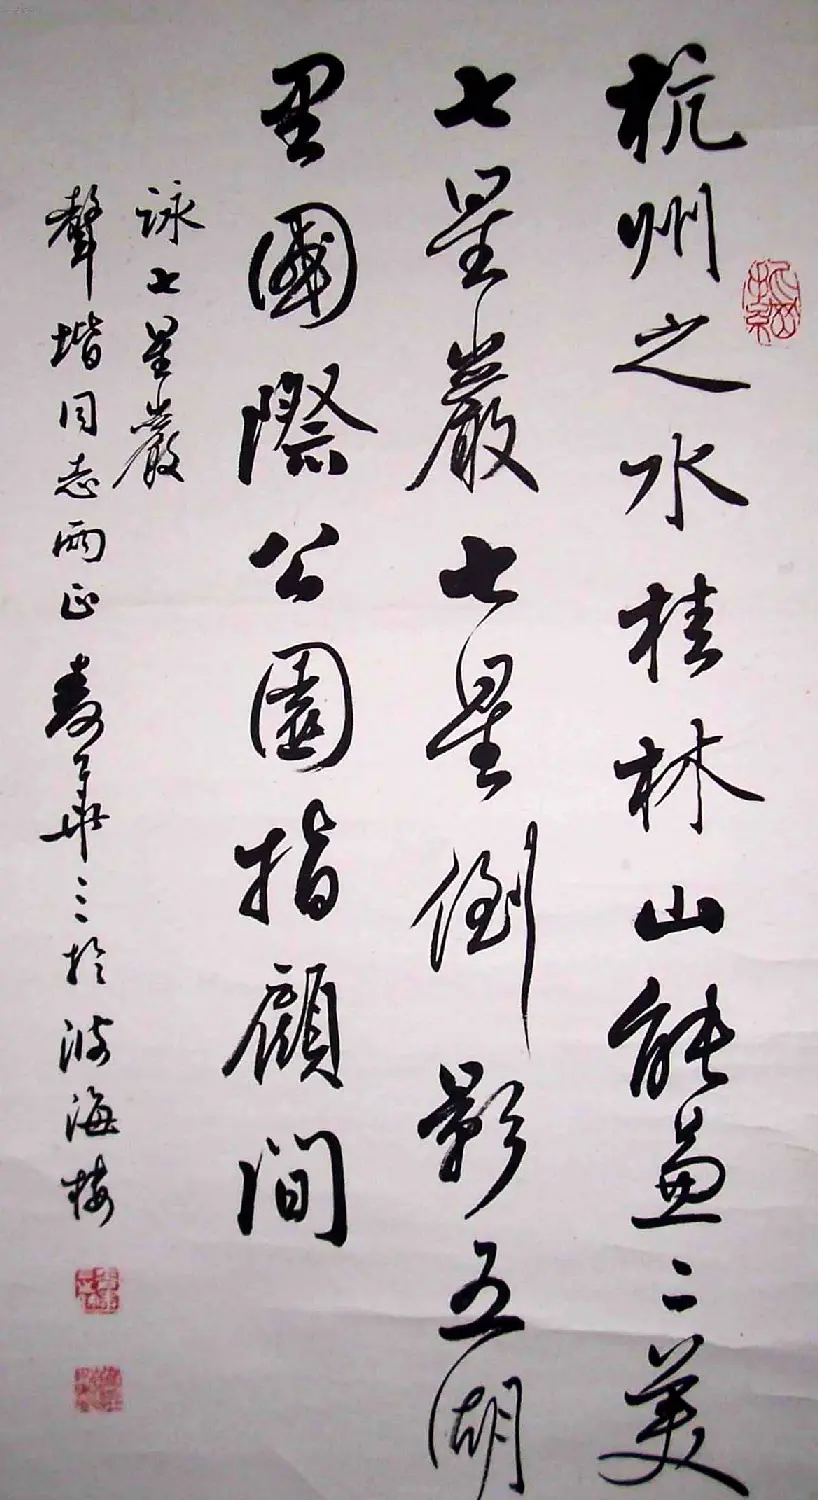 杭州之水桂林山能兼二美
七星巖七星倒影五湖
里國際公園指顧間
詠七星巖
聲堦同志兩正 麥華三於波海樓